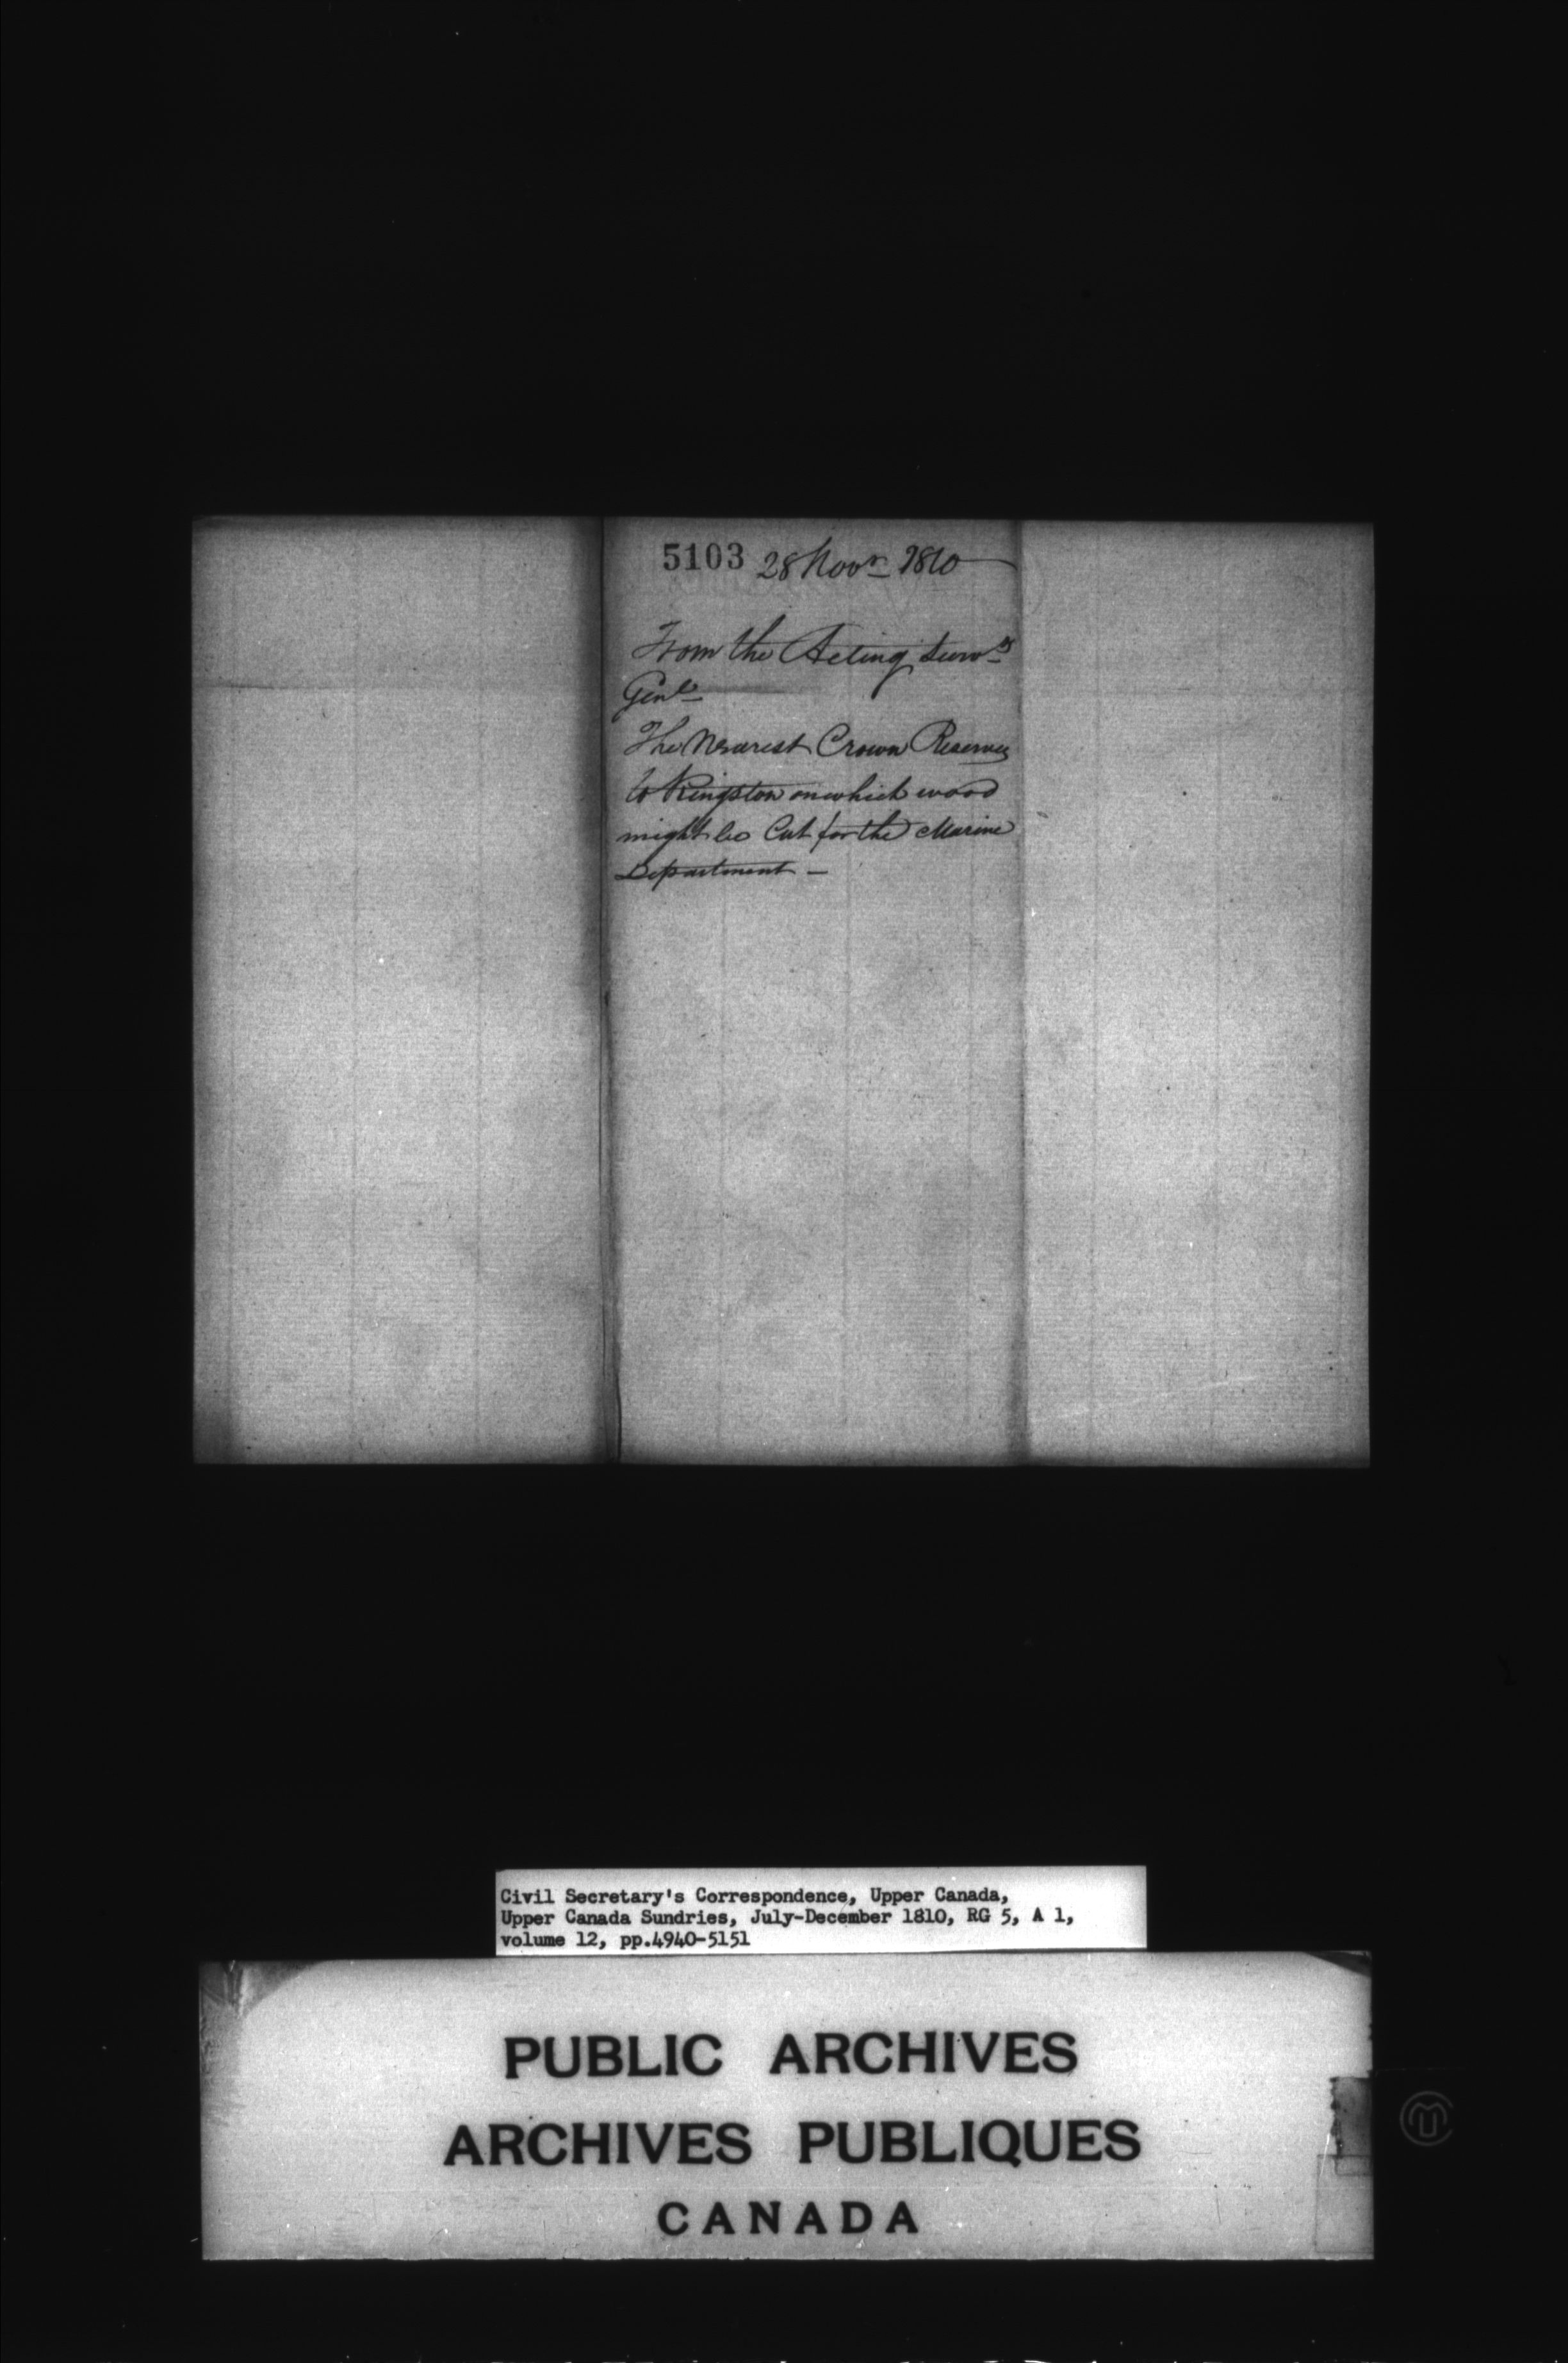 5103 28 Novr 1810
From the Acting Survr
Genl
The Nearest Crown Reserves
to Kingston on which wood
might be Cut for the Marine
Department —
Civil Secretary's Correspondence, Upper Canada,
Upper Canada Sundries, July-December 1810, RG 5, A 1,
volume 12, pp.4940-5151
PUBLIC ARCHIVES
ARCHIVES PUBLIQUES
CANADA